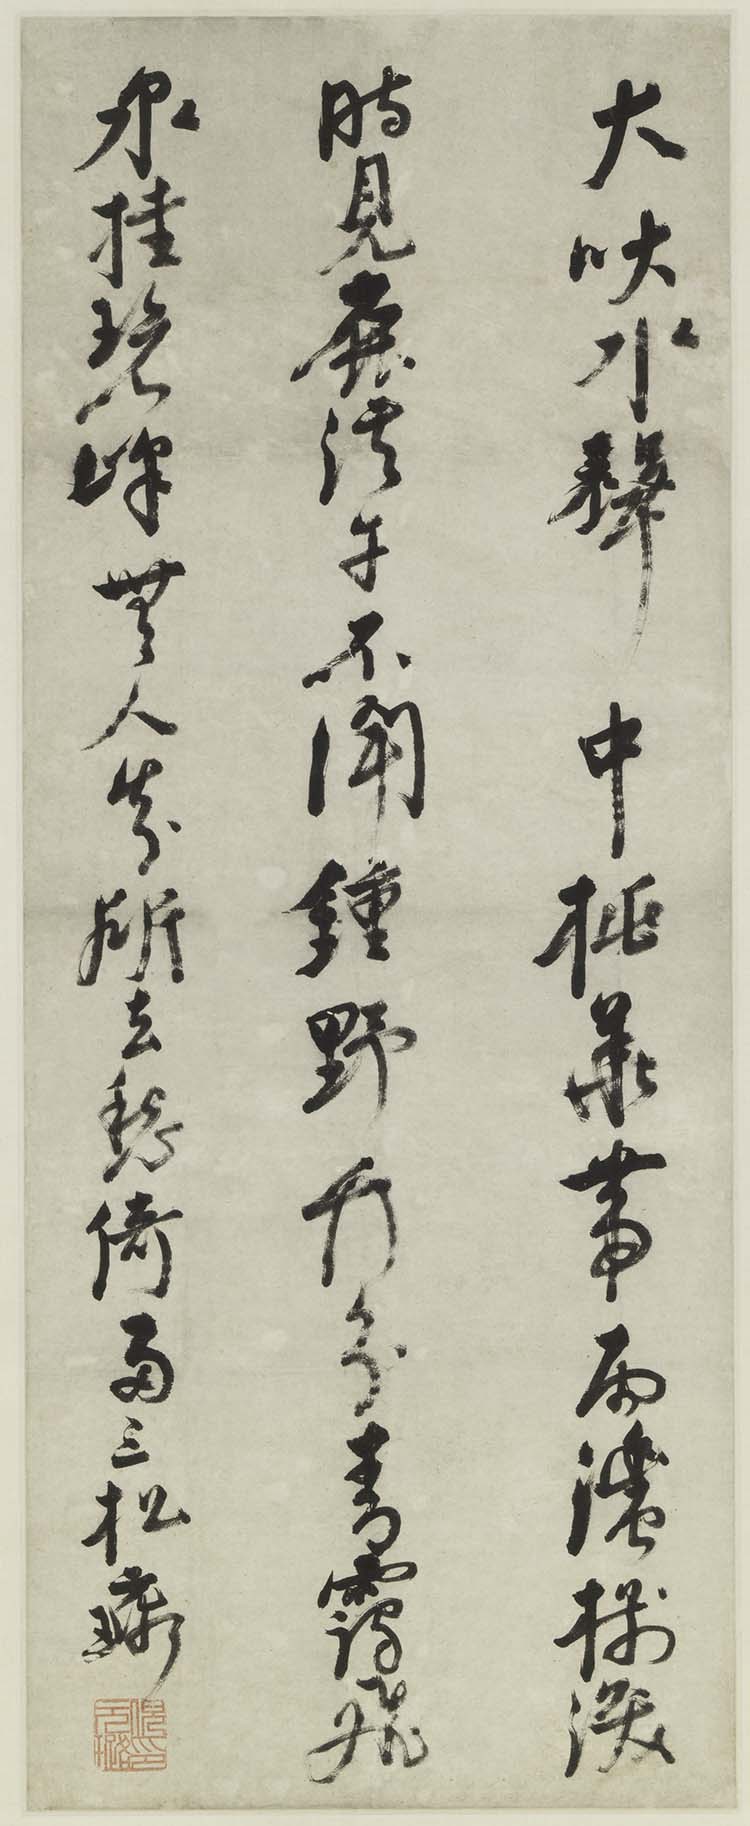 犬吠水聲中桃華帶雨濃樹深
時見鹿溪午不聞鐘野竹分青靄飛
泉挂碧峰無人知所去愁倚兩三松 璐